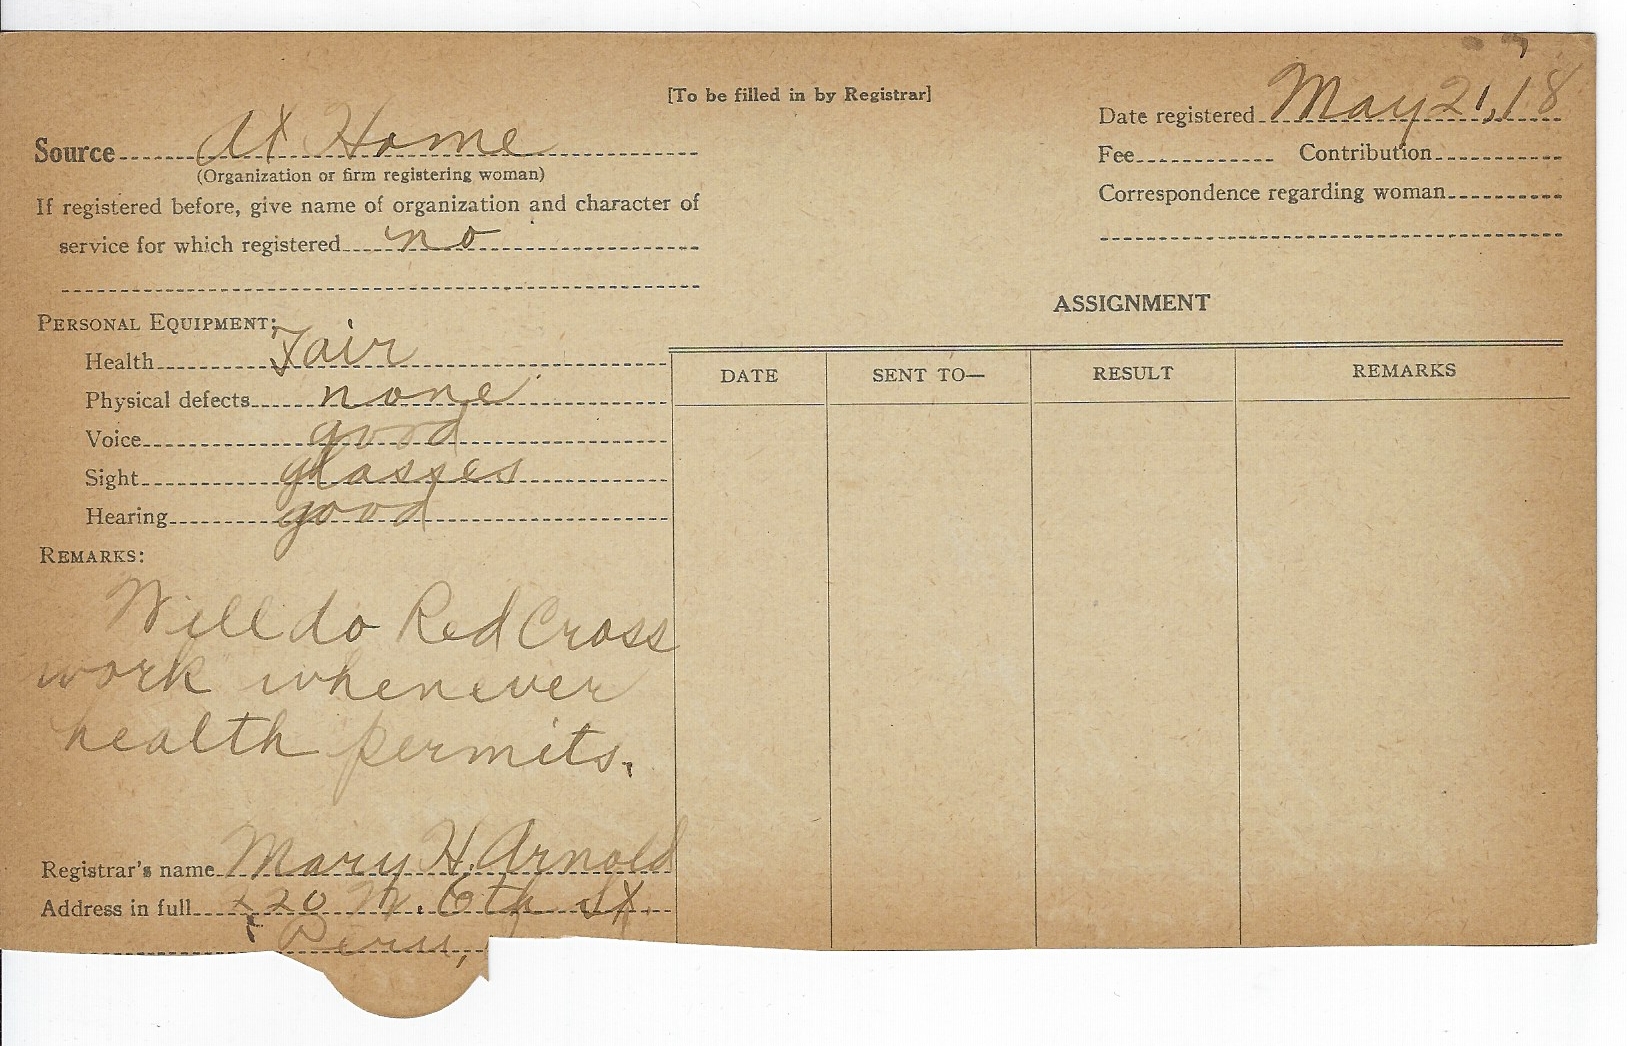 [To be filled in by Registrar]
Date registered May 21, 18
Source At Home
(Organization or firm registering woman)
Fee Contribution
If registered before, give name of organization and character of
service for which registered no
Correspondence regarding woman
ASSIGNMENT
PERSONAL EQUIPMENT:
Health Fair
Physical defects none
Voice good
Sight glasses
Hearing good
DATE SENT TO— RESULT REMARKS
REMARKS:
Will do Red Cross
work whenever
health permits.
Registrar's name Mary H. Arnold
Address in full 220 N. 6th St.
Peru,